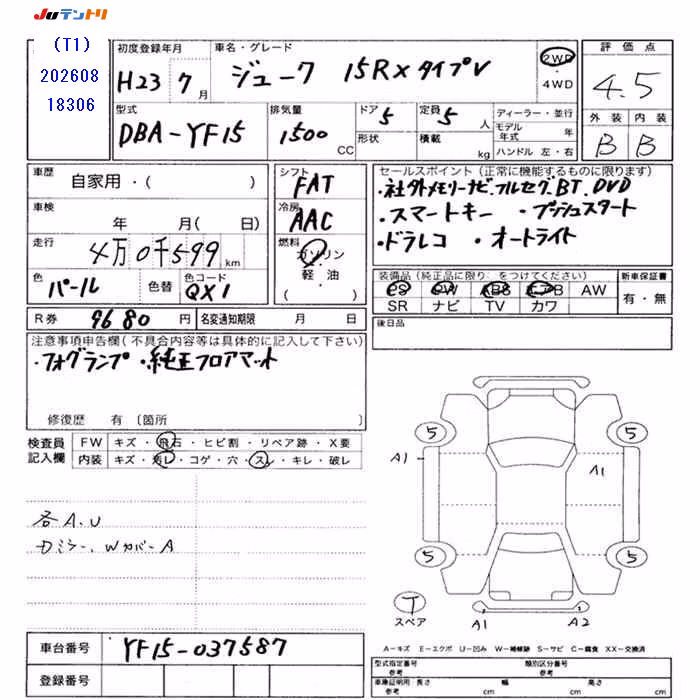 JUテントリ
(T1)
202608
18306
初度登録年月
H23 7月
車名・グレード
ジューク 15RX タイプV
2WD
・
4WD
評価点
4.5
外装 内装
B B
型式
DBA-YF15
排気量
1500 CC
ドア 5
形状
定員 5 人
積載 kg
ディーラー・並行
モデル年式 年
ハンドル 左・右
車歴
自家用・( )
車検
年 月( 日)
走行
4万0千599 km
色
パール
色替
色コード
QX1
シフト
FAT
冷房
AAC
燃料
ガソリン
軽・油
( )
セールスポイント(正常に機能するものに限ります)
・社外メモリーナビ.フルセグ.BT.DVD
・スマートキー ・プッシュスタート
・ドラレコ ・オートライト
装備品(純正品に限り をつけてください)
PS PW ABS エアB AW
SR ナビ TV カワ
新車保証書
有・無
R券 9680 円
名変通知期限 月 日
後日品
注意事項申告欄(不具合内容等は具体的に記入して下さい)
・フォグランプ ・純正フロアマット
修復歴 有 〔箇所 〕
検査員
記入欄
FW キズ・飛石・ヒビ割・リペア跡・X要
内装 キズ・汚レ・コゲ・穴・スレ・キレ・破レ
各A.U
ドミラー、WカバーA
5 5
A1 A1
5 5
T
スペア
A1 A2
車台番号 YF15-037587
登録番号
A-キズ E-エクボ U-凹み W-補修跡 S-サビ C-腐食 XX-交換済
型式指定番号 参考
類別区分番号 参考
車庫証明用 参考 長さ cm 幅 cm 高さ cm